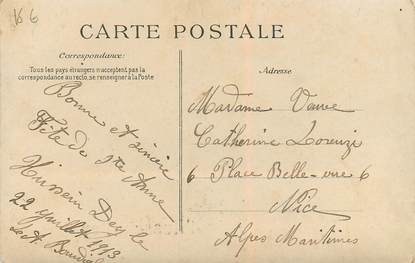 CARTE POSTALE
Correspondance:
Tous les pays étrangers n'acceptent pas la
correspondance au recto, se renseigner à la Poste
Bonne et sincère
Fête de Ste Anne
Hussein Dey le
22 juillet 1913
Adresse
Madame Veuve
Catherine Lorenzi
6 Place Belle-vue 6
Nice
Alpes Maritimes